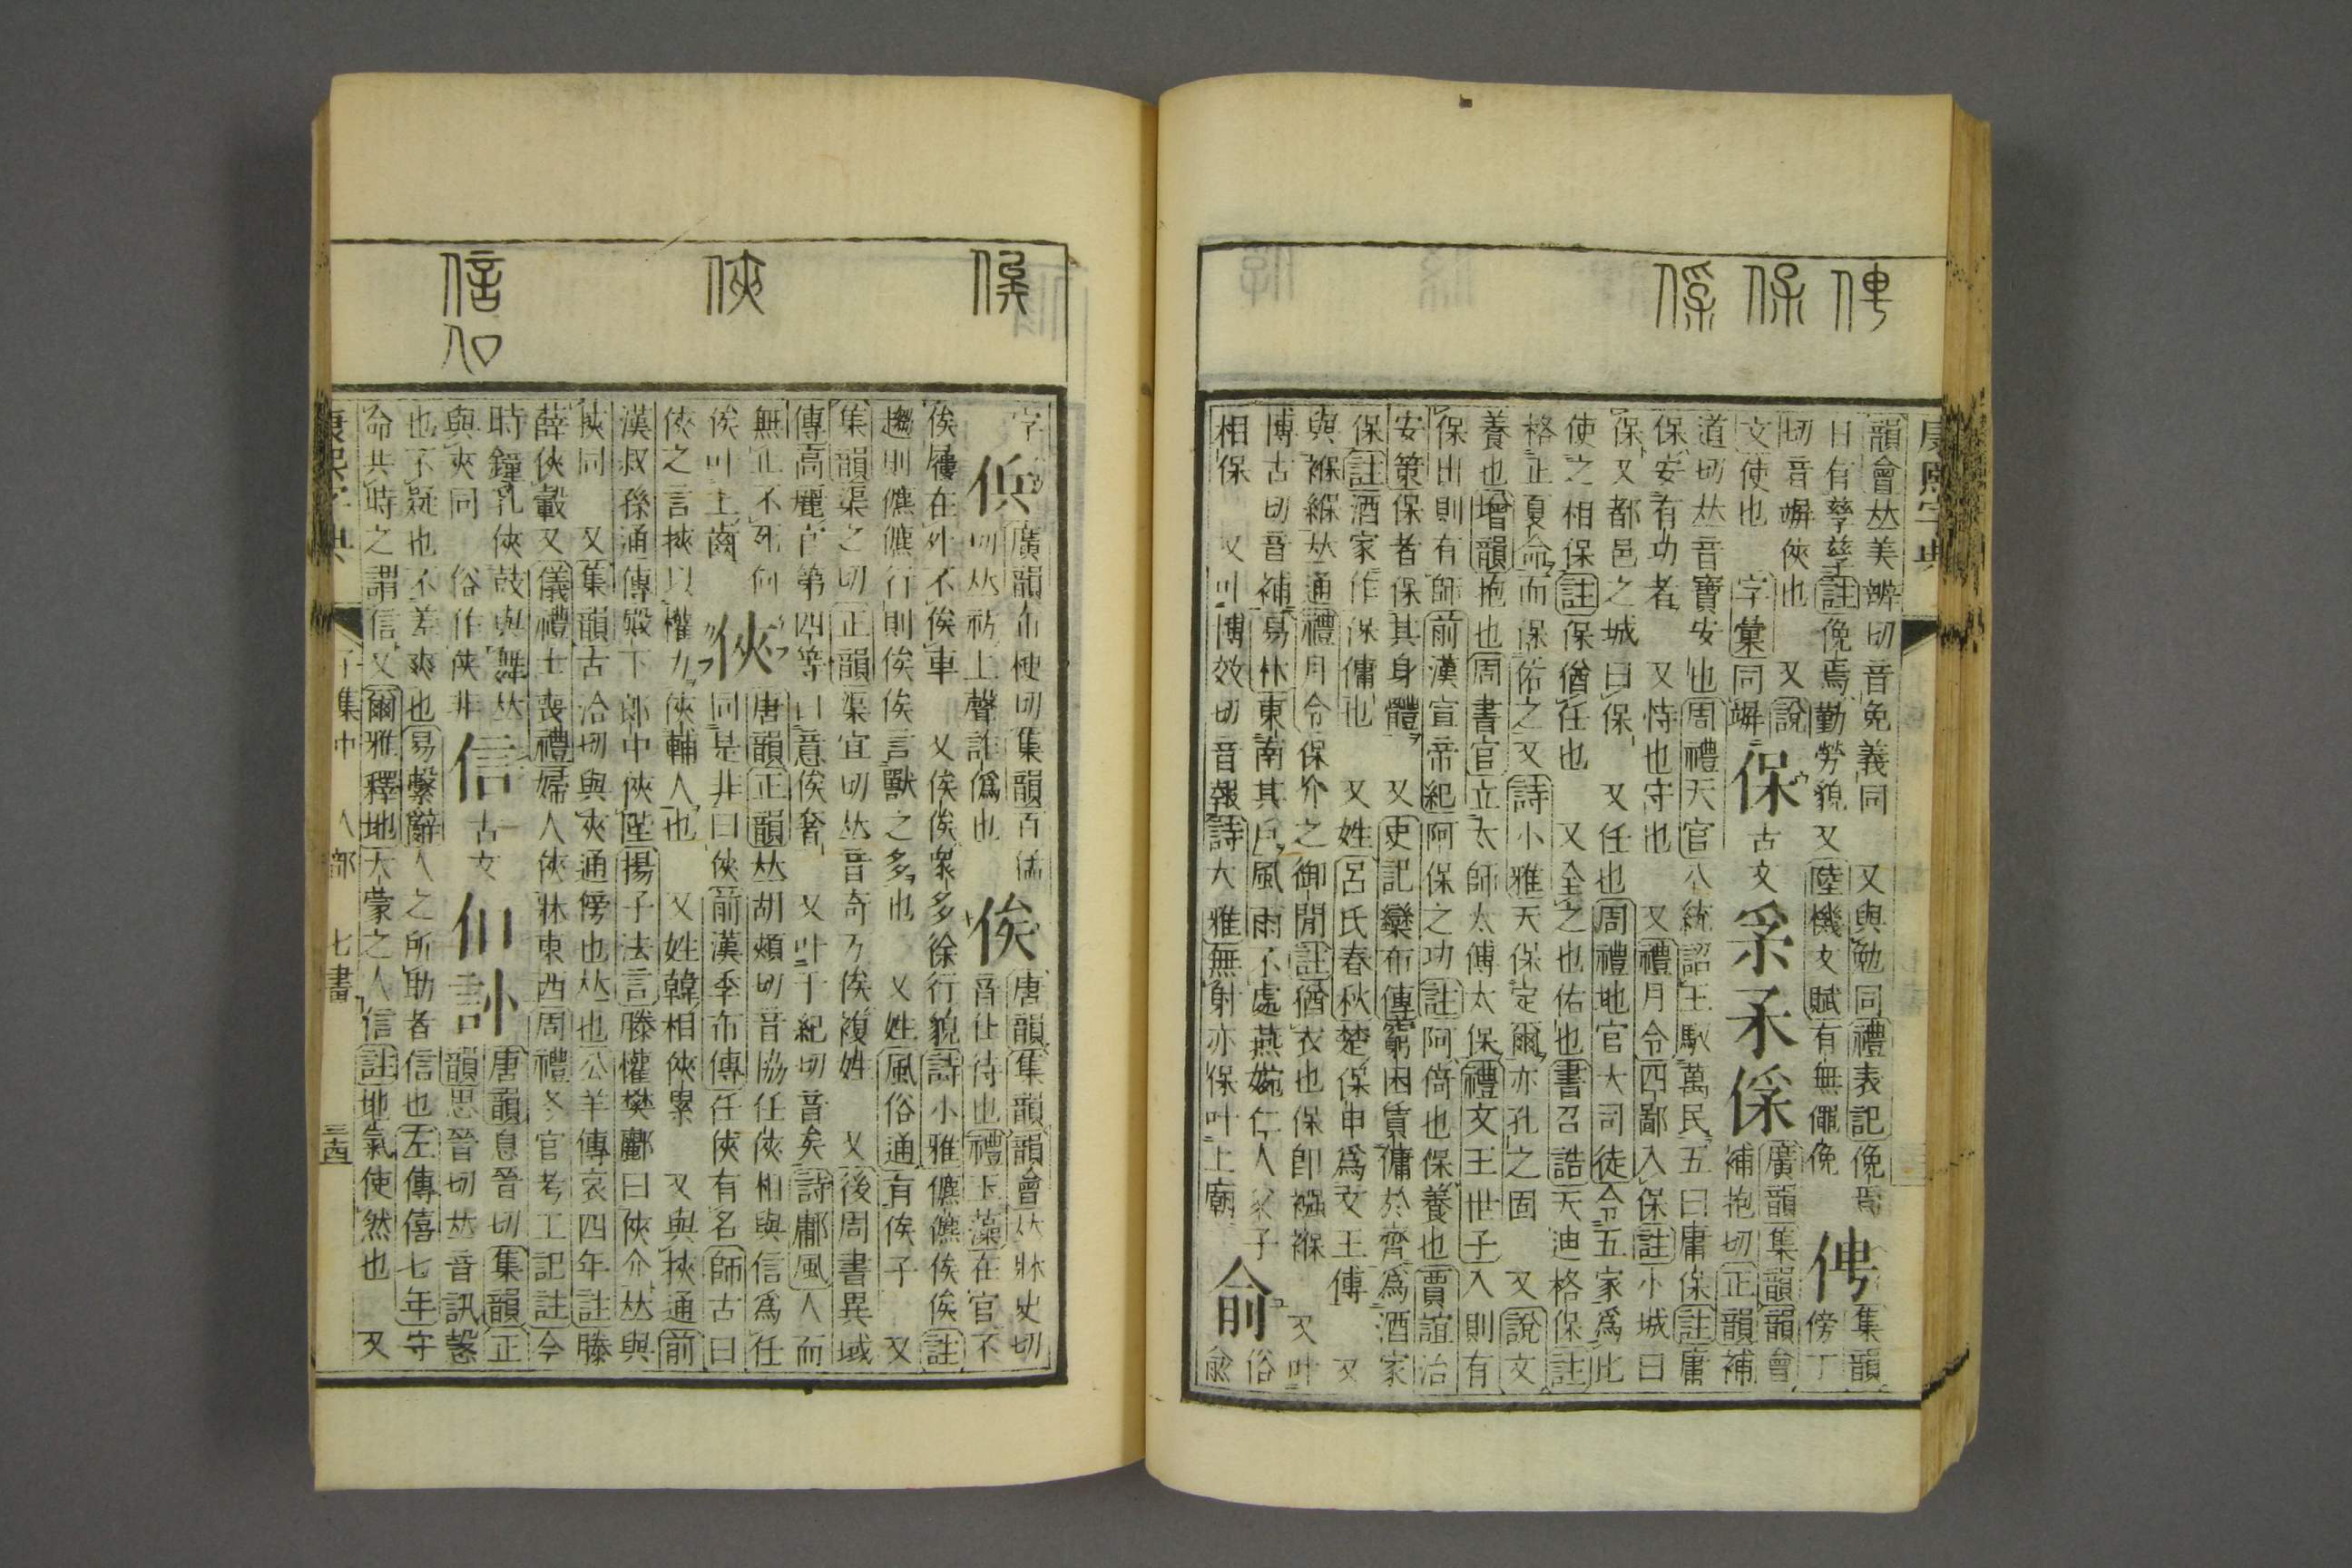 康熙字典
韻會𠀤美辨切音免義同 又與勉同禮表記俛焉
日有孳孳註俛焉勤勞貌 又陸機文賦有無僶俛
俜
集韻傍丁
切音竮俠也 又說
文使也 字彙同竮
保 古文
廣韻集韻韻會
補抱切正韻補
道切𠀤音寶安也周禮天官八統詔王馭萬民五曰庸保註庸
保安有功者 又恃也守也 又禮月令四鄙入保註小城曰
保又都邑之城曰保 又任也周禮地官大司徒令五家爲比
使之相保註保猶任也 又全之也佑也書召誥天迪格保註
格正夏命而保佑之又詩小雅天保定爾亦孔之固 又說文
養也增韻抱也周書官立太師太傅太保禮文王世子入則有
保出則有師前漢宣帝紀阿保之功註阿倚也保養也賈誼治
安策保者保其身體 又史記欒布傳窮困賃傭於齊爲酒家
保註酒家作保傭也 又姓呂氏春秋楚保申爲文王傅 又
與褓緥𠀤通禮月令保介之御閒註猶衣也保卽襁褓 又叶
博古切音補易林東南其戶風雨不處燕婉仁人父子
相保 又叶博效切音報詩大雅無射亦保叶上廟
俞
俗兪
字
廣韻布梗切集韻百猛
切𠀤祊上聲詐僞也
俟
唐韻集韻韻會𠀤牀史切
音仕待也禮玉藻在官不
俟屨在外不俟車 又俟俟衆多徐行貌詩小雅儦儦俟俟註
趨則儦儦行則俟俟言獸之多也 又姓風俗通有俟子 又
集韻渠之切正韻渠宜切𠀤音奇万俟複姓 又後周書異域
傳高麗官第四等曰意俟奢 又叶于紀切音矣詩鄘風人而
無止不死何
俟叶上齒
俠
唐韻正韻𠀤胡頰切音協任俠相與信爲任
同是非曰俠前漢季布傳任俠有名師古曰
俠之言挾以權力俠輔人也 又姓韓相俠累 又與挾通前
漢叔孫通傳殿下郎中俠陛揚子法言滕灌樊酈曰俠介𠀤與
挾同 又集韻古洽切與夾通傍也𠀤也公羊傳哀四年註滕
薛俠轂又儀禮士喪禮婦人俠牀東西周禮冬官考工記註今
時鐘乳俠鼓與舞𠀤
與夾同 俗作俠非
信 古文 㐰訫
唐韻息晉切集韻正
韻思晉切𠀤音訊愨
也不疑也不差爽也易繫辭人之所助者信也左傳僖七年守
命共時之謂信又爾雅釋地大蒙之人信註地氣使然也 又
康熙字典 子集中 人部 七畫